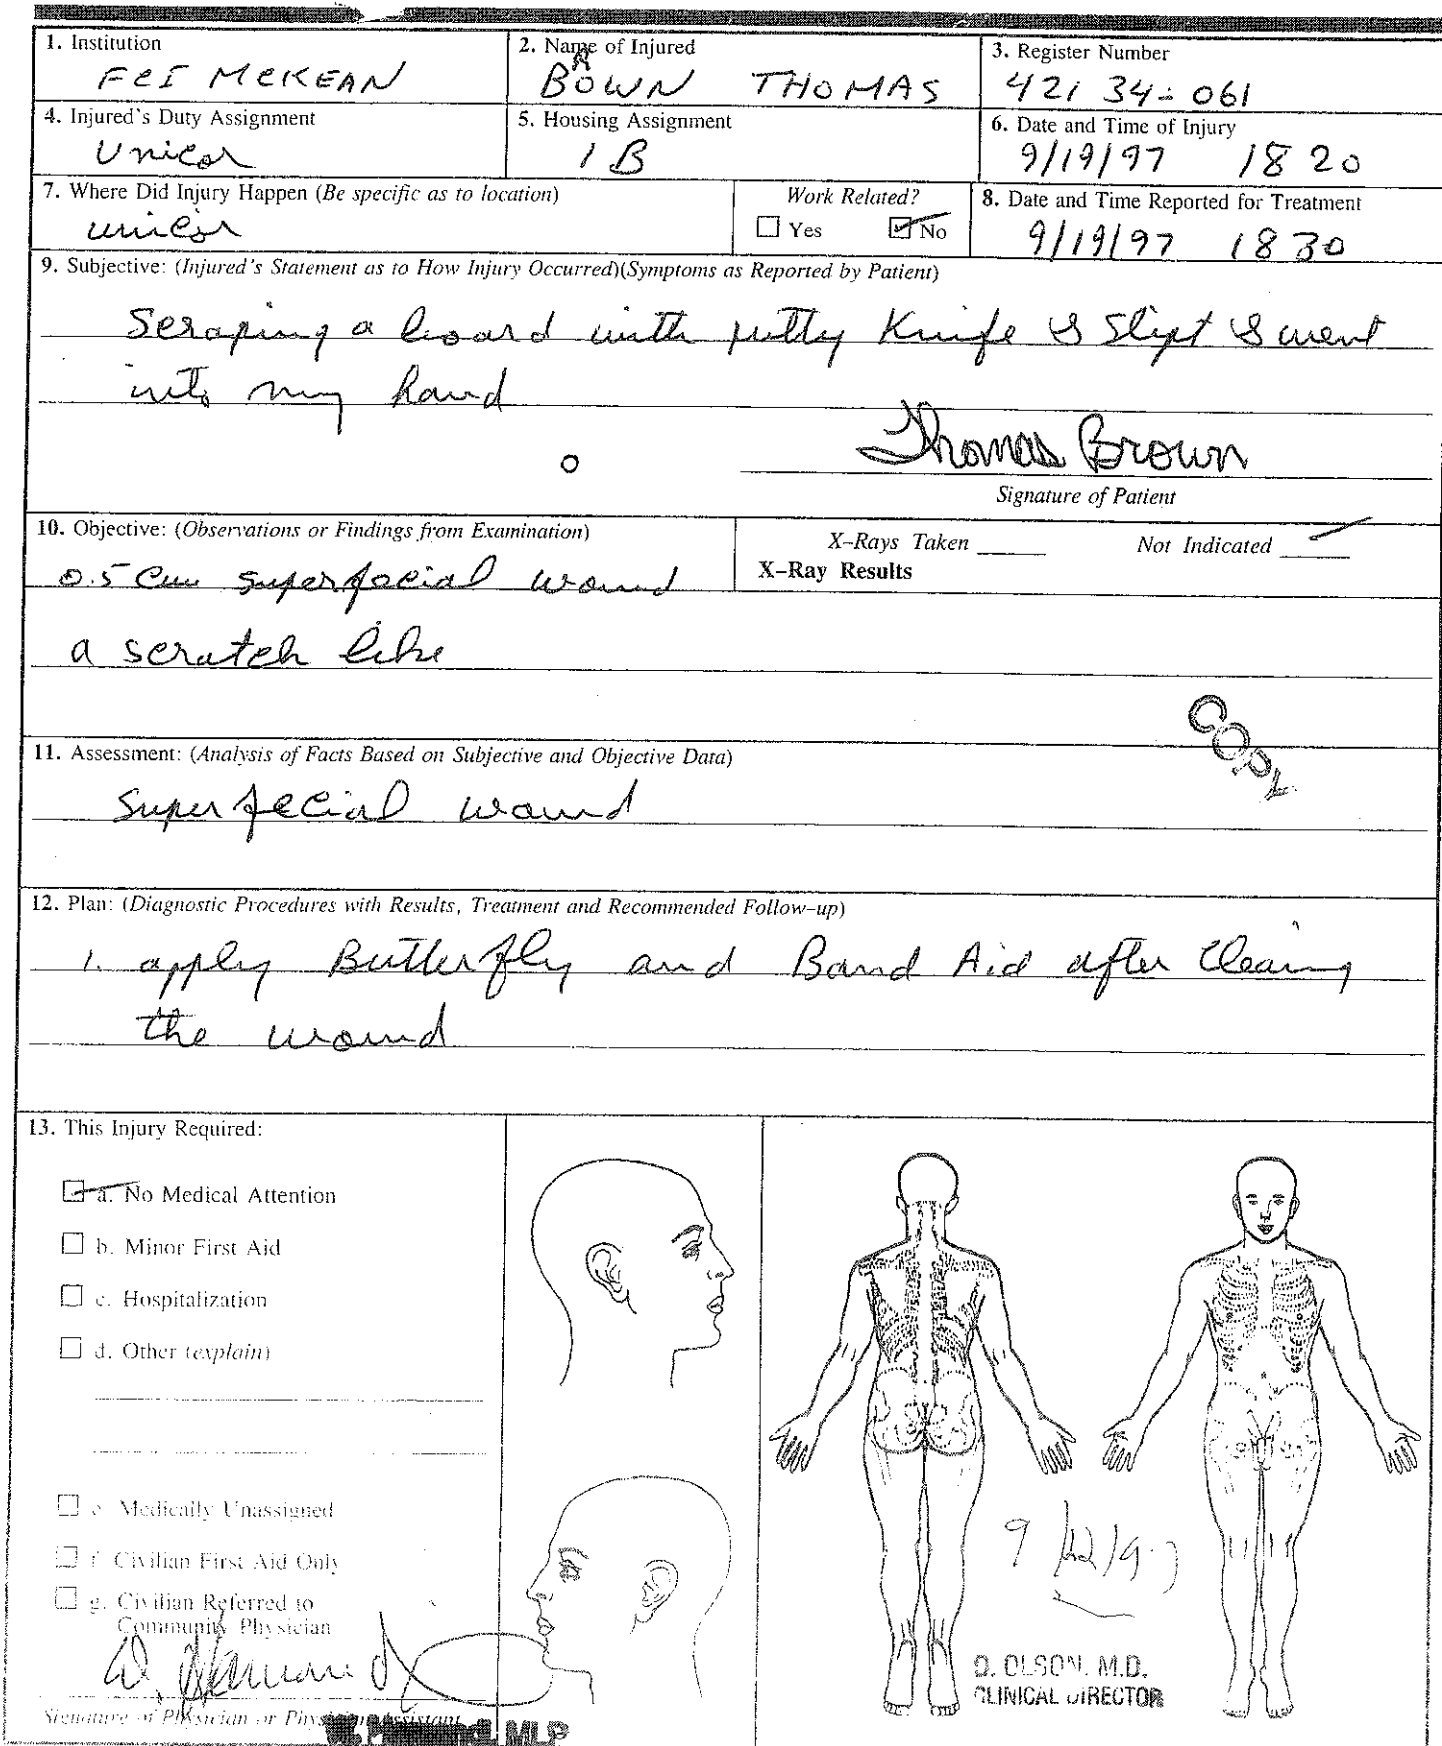 1. Institution
FCI McKEAN
2. Name of Injured
R
BOWN THOMAS
3. Register Number
42134-061
4. Injured's Duty Assignment
Unicor
5. Housing Assignment
1 B
6. Date and Time of Injury
9/19/97 1820
7. Where Did Injury Happen (Be specific as to location)
unicor
Work Related?
Yes No
8. Date and Time Reported for Treatment
9/19/97 1830
9. Subjective: (Injured's Statement as to How Injury Occurred)(Symptoms as Reported by Patient)
Scraping a board with putty Knife & Slipt & went
into my hand
Thomas Brown
Signature of Patient
10. Objective: (Observations or Findings from Examination)
X-Rays Taken Not Indicated
X-Ray Results
0.5 cm superfecial wound
a scratch like
COPY
11. Assessment: (Analysis of Facts Based on Subjective and Objective Data)
superfecial wound
12. Plan: (Diagnostic Procedures with Results, Treatment and Recommended Follow-up)
1. apply Butterfly and Band Aid after Cleaing
the wound
13. This Injury Required:
a. No Medical Attention
b. Minor First Aid
c. Hospitalization
d. Other (explain)
e. Medically Unassigned
f. Civilian First Aid Only
g. Civilian Referred to
Community Physician
Signature of Physician or Physician Assistant
MLP
D. OLSON, M.D.
CLINICAL DIRECTOR